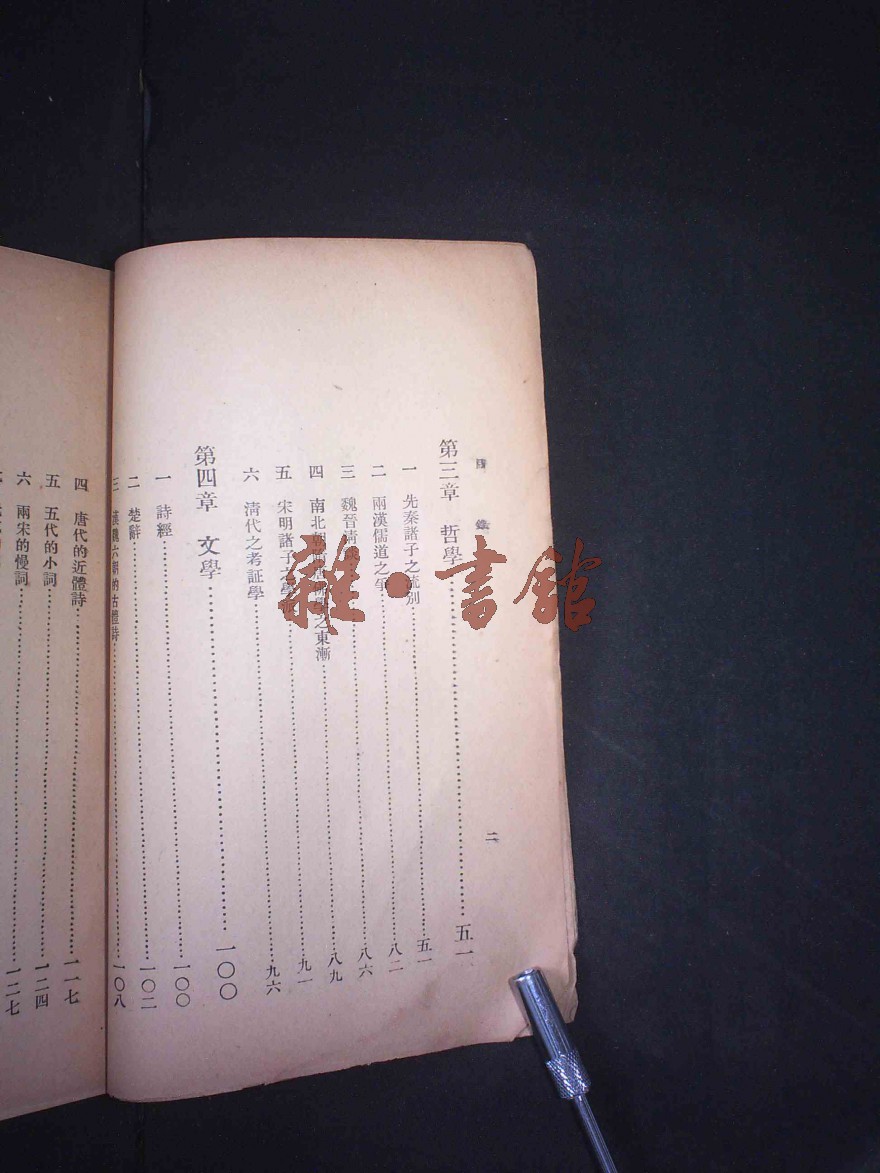 目錄 二
第三章 哲學……五一
一 先秦諸子之流別……五一
二 兩漢儒道之爭……八二
三 魏晉清談……八六
四 南北朝隋唐佛學之東漸……八九
五 宋明諸子之學派……九一
六 清代之考証學……九六
第四章 文學……一〇〇
一 詩經……一〇〇
二 楚辭……一〇二
三 漢魏六朝的古體詩……一〇八
四 唐代的近體詩……一一七
五 五代的小詞……一二四
六 兩宋的慢詞……一二七
雜·書館